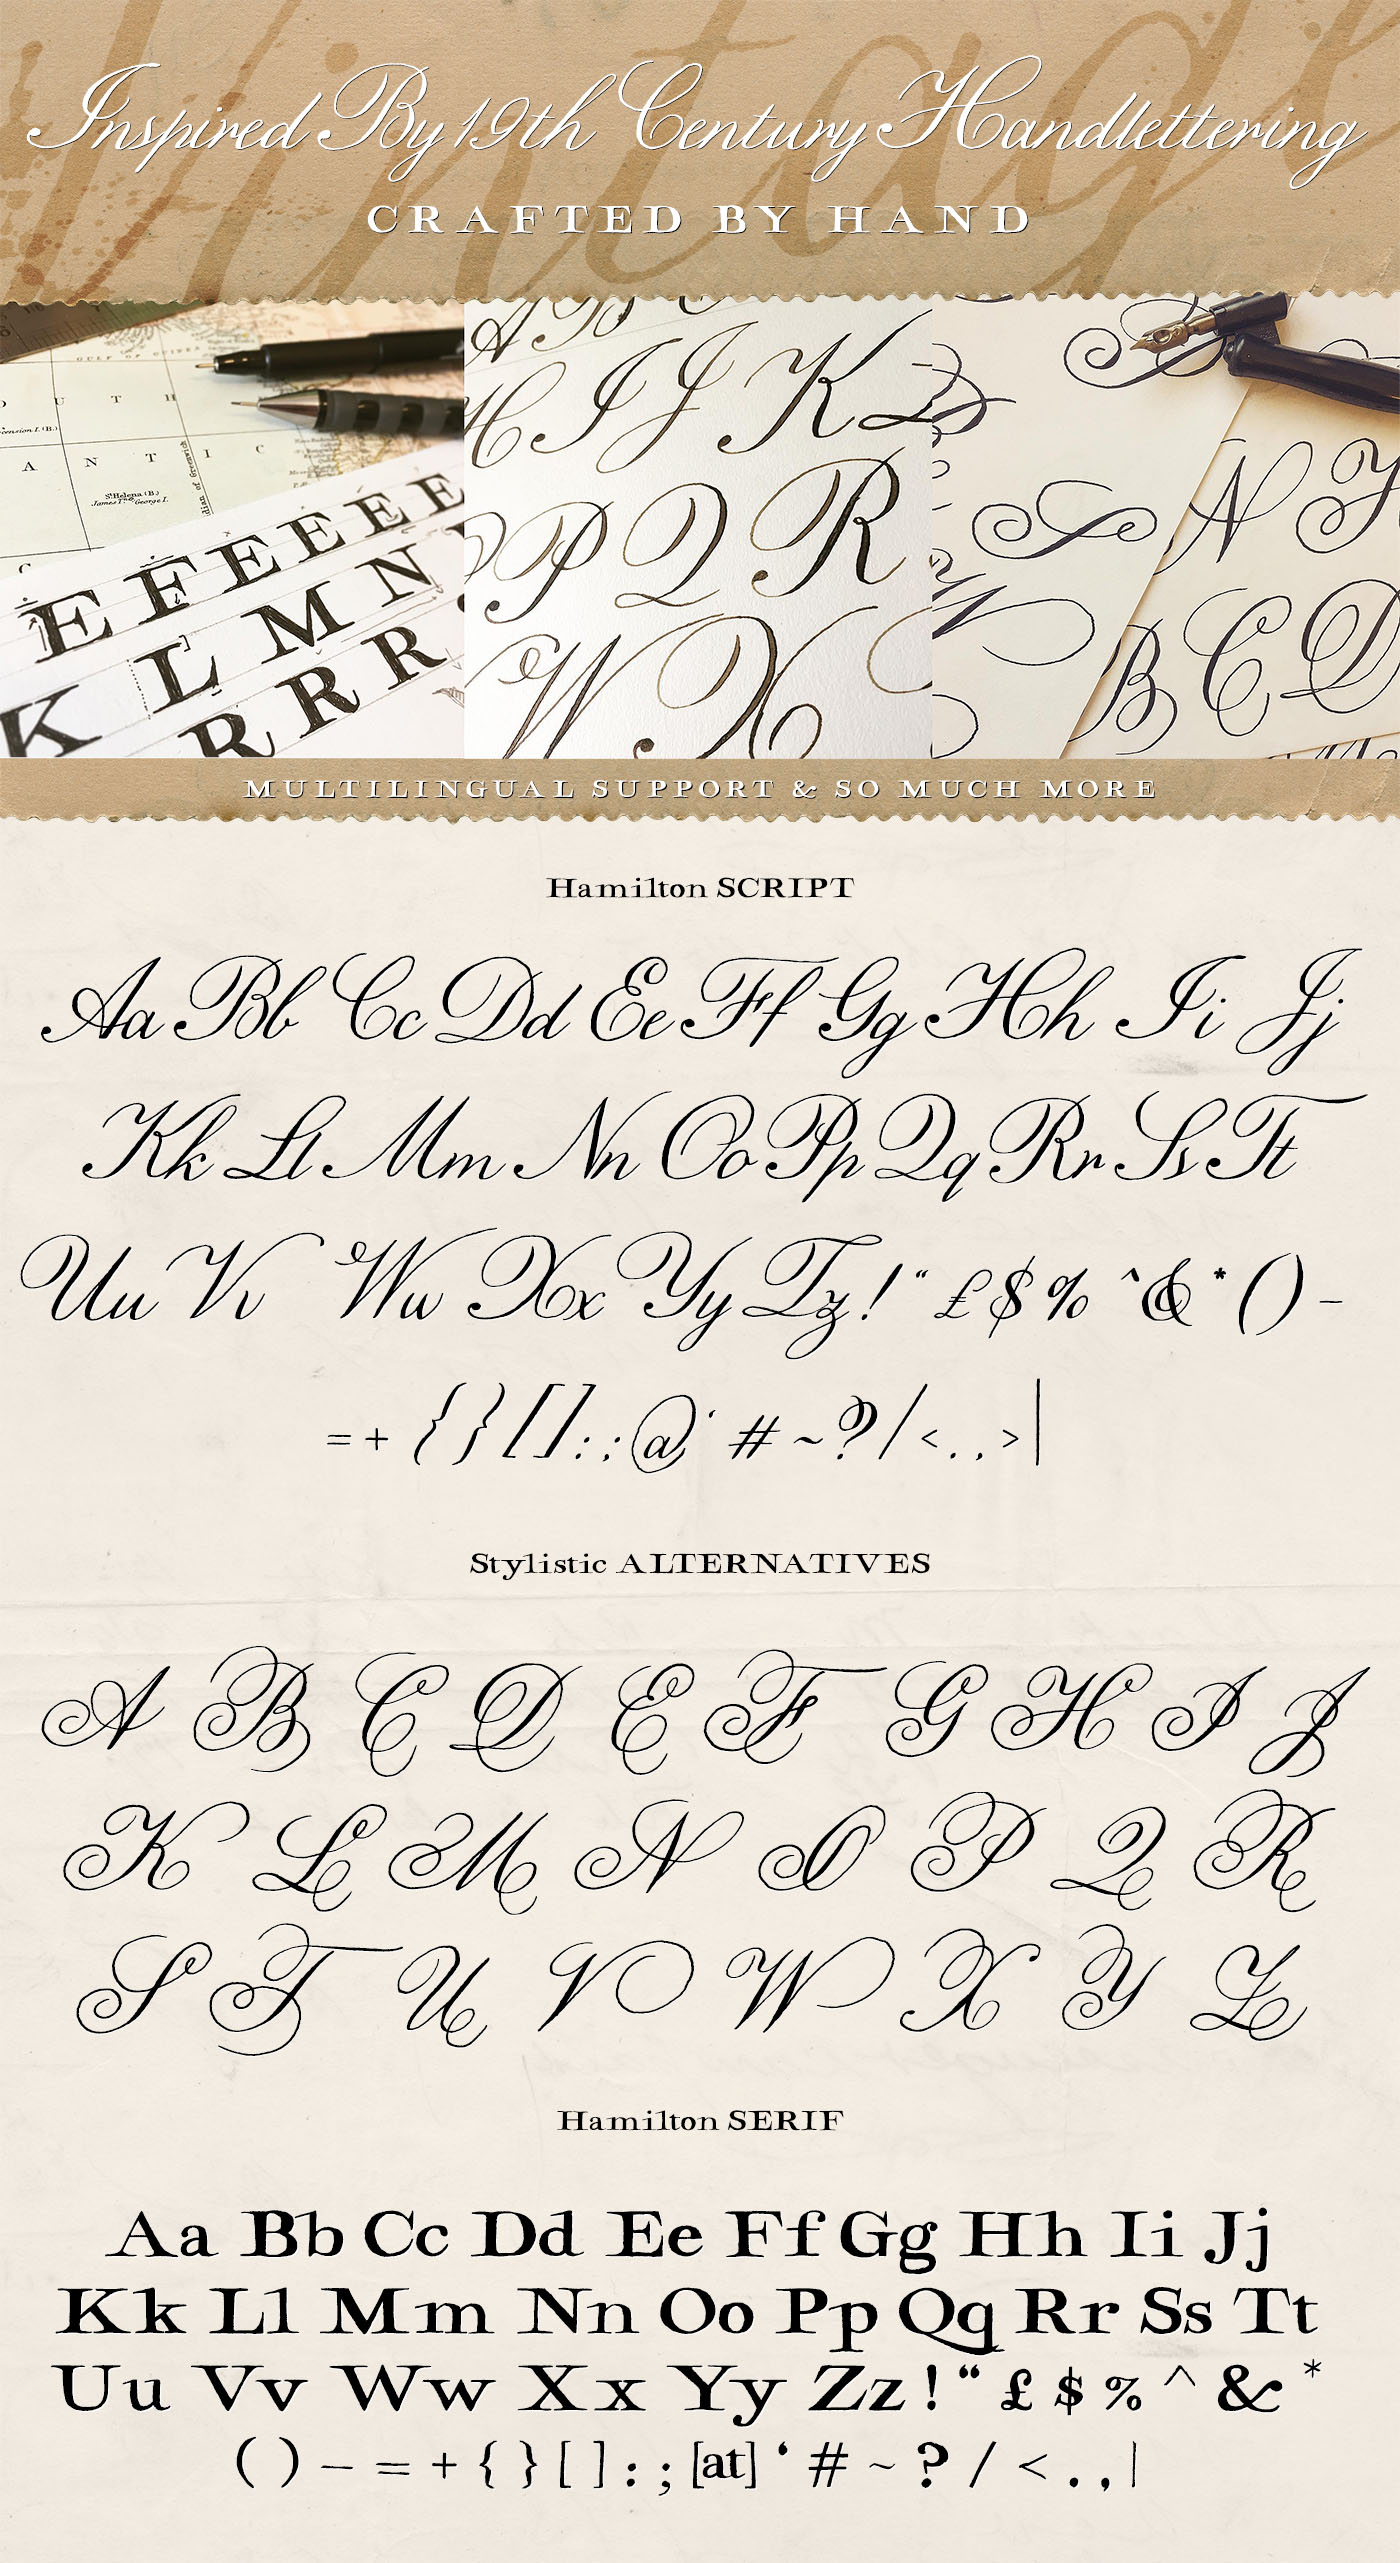 Vintage
Inspired By 19th Century Handlettering
CRAFTED BY HAND
GULF OF GUINEA
O U T H
cension I. (B.)
A N T I C
St Helena (B.)
James T. George I.
dian of Greenwich
E F E E E E
K L M N
R R R
A B
H I J K L
P Q R
W X
N Y
B C D
MULTILINGUAL SUPPORT & SO MUCH MORE
Hamilton SCRIPT
Aa Bb Cc Dd Ee Ff Gg Hh Ii Jj
Kk Ll Mm Nn Oo Pp Qq Rr Ss Tt
Uu Vv Ww Xx Yy Zz ! “ £ $ % ^ & * ( ) -
= + { } [ ] : ; @ ‘ # ~ ? / < . , > |
Stylistic ALTERNATIVES
A B C D E F G H I J
K L M N O P Q R
S T U V W X Y Z
Hamilton SERIF
Aa Bb Cc Dd Ee Ff Gg Hh Ii Jj
Kk Ll Mm Nn Oo Pp Qq Rr Ss Tt
Uu Vv Ww Xx Yy Zz ! “ £ $ % ^ & *
( ) – = + { } [ ] : ; [at] ‘ # ~ ? / < . , |